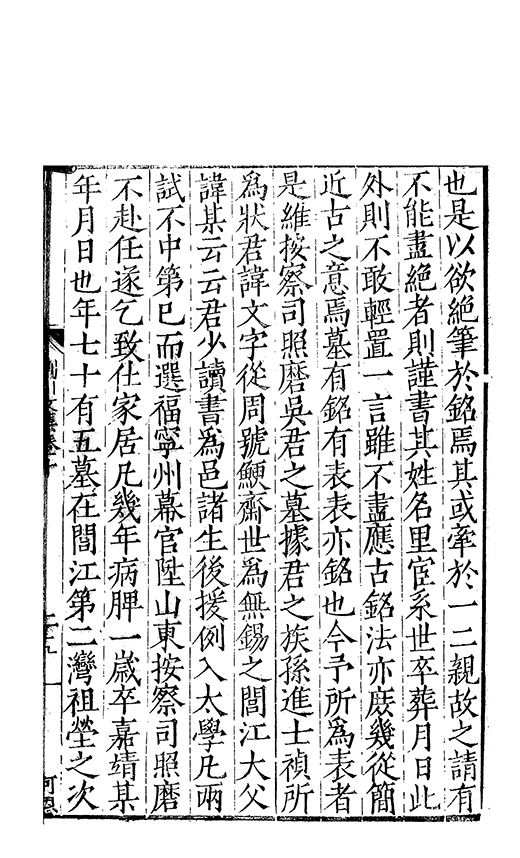 也是以欲絶筆於銘焉其或牽於一二親故之請有
不能盡絶者則謹書其姓名里宦系世卒葬月日此
外則不敢輕置一言雖不盡應古銘法亦庶幾從簡
近古之意焉墓有銘有表表亦銘也今予所爲表者
是維按察司照磨吳君之墓據君之族孫進士禎所
爲狀君諱文字從周號鯁齋世爲無錫之閭江大父
諱某云云君少讀書爲邑諸生後援例入太學凡兩
試不中第已而選福寧州幕官陞山東按察司照磨
不赴任遂乞致仕家居凡幾年病脾一歲卒嘉靖某
年月日也年七十有五墓在閭江第二灣祖塋之次